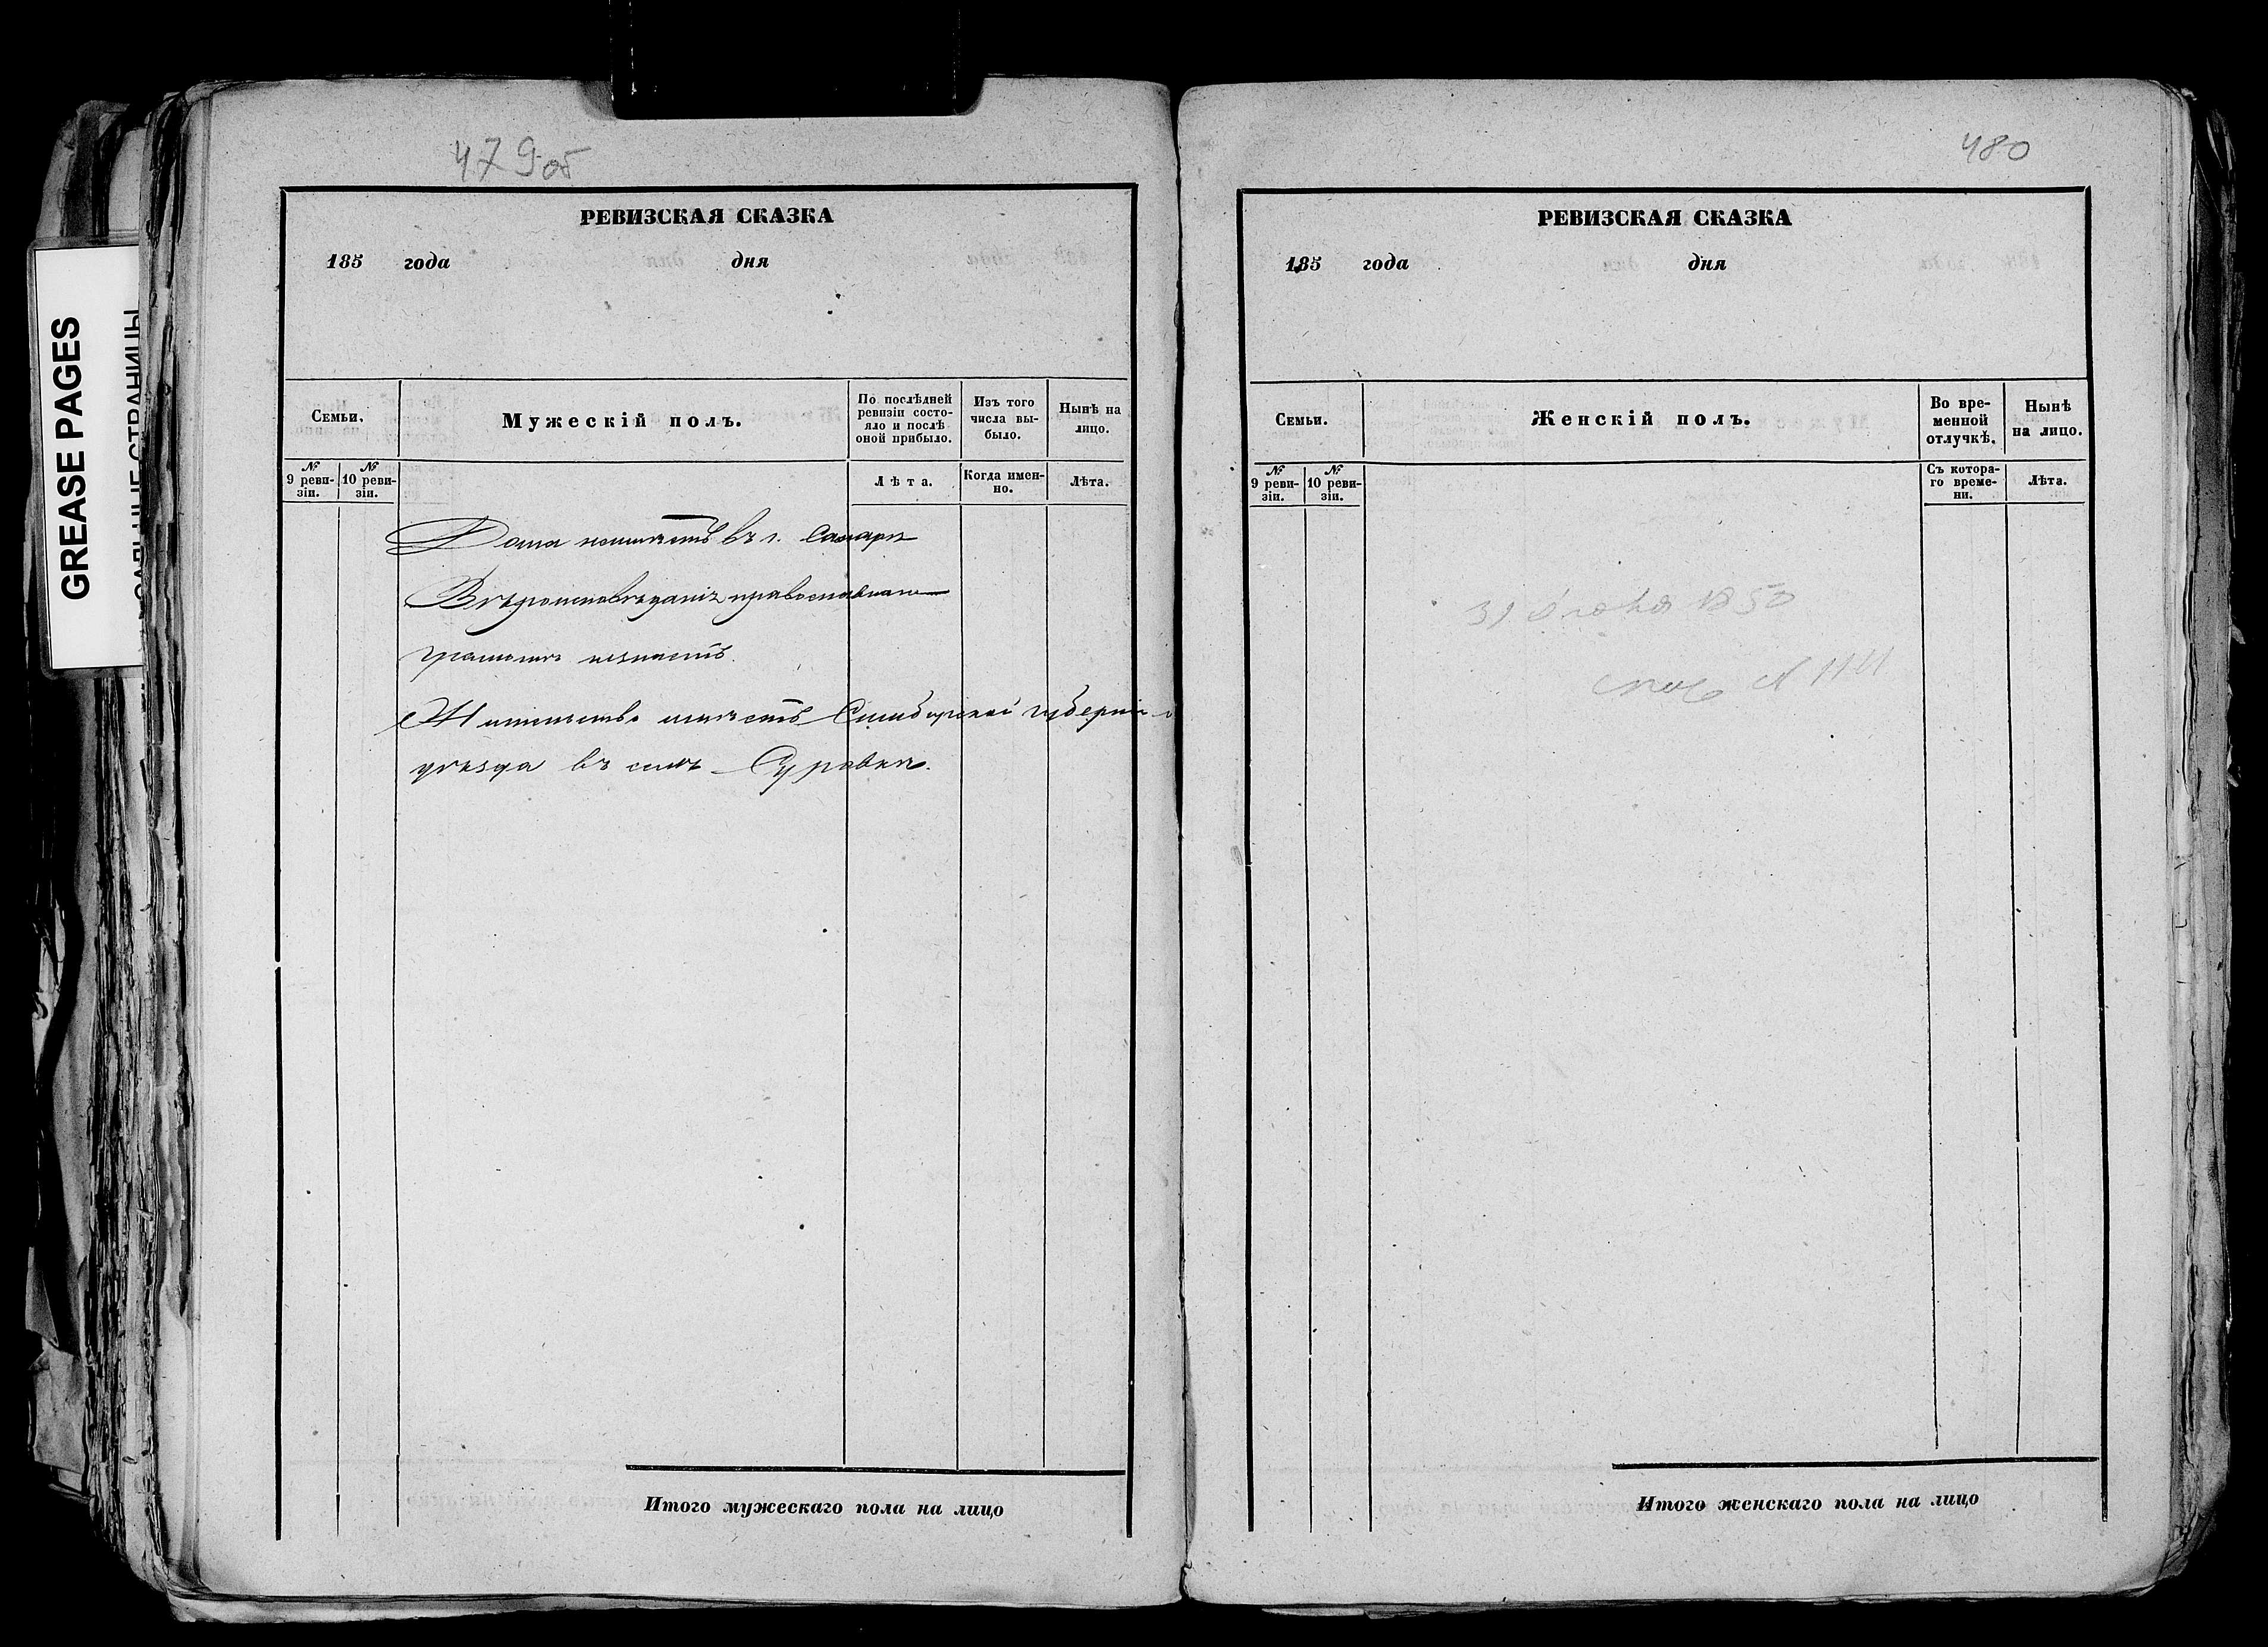 479 об
РЕВИЗСКАЯ СКАЗКА
185 года дня
Семьи.
Мужескій полъ.
По послѣдней ревизіи состо-
яло и послѣ оной прибыло.
Изъ того числа вы-
было.
Нынѣ на лицо.
№ 9 реви-
зіи.
№ 10 реви-
зіи.
Лѣта.
Когда имен-
но.
Лѣта.
Дома неимѣетъ въ г. Самарѣ
Вѣроисповѣданія православнаго
грамотѣ незнаетъ.
Жительство имѣетъ Симбирской губерніи
уѣзда въ селѣ Суровкѣ.
Итого мужескаго пола на лицо
480
РЕВИЗСКАЯ СКАЗКА
185 года дня
Семьи.
Женскій полъ.
Во вре-
менной
отлучкѣ.
Нынѣ
на лицо.
№ 9 реви-
зіи.
№ 10 реви-
зіи.
Съ котора-
го време-
ни.
Лѣта.
31 1850
№
Итого женскаго пола на лицо
GREASE PAGES